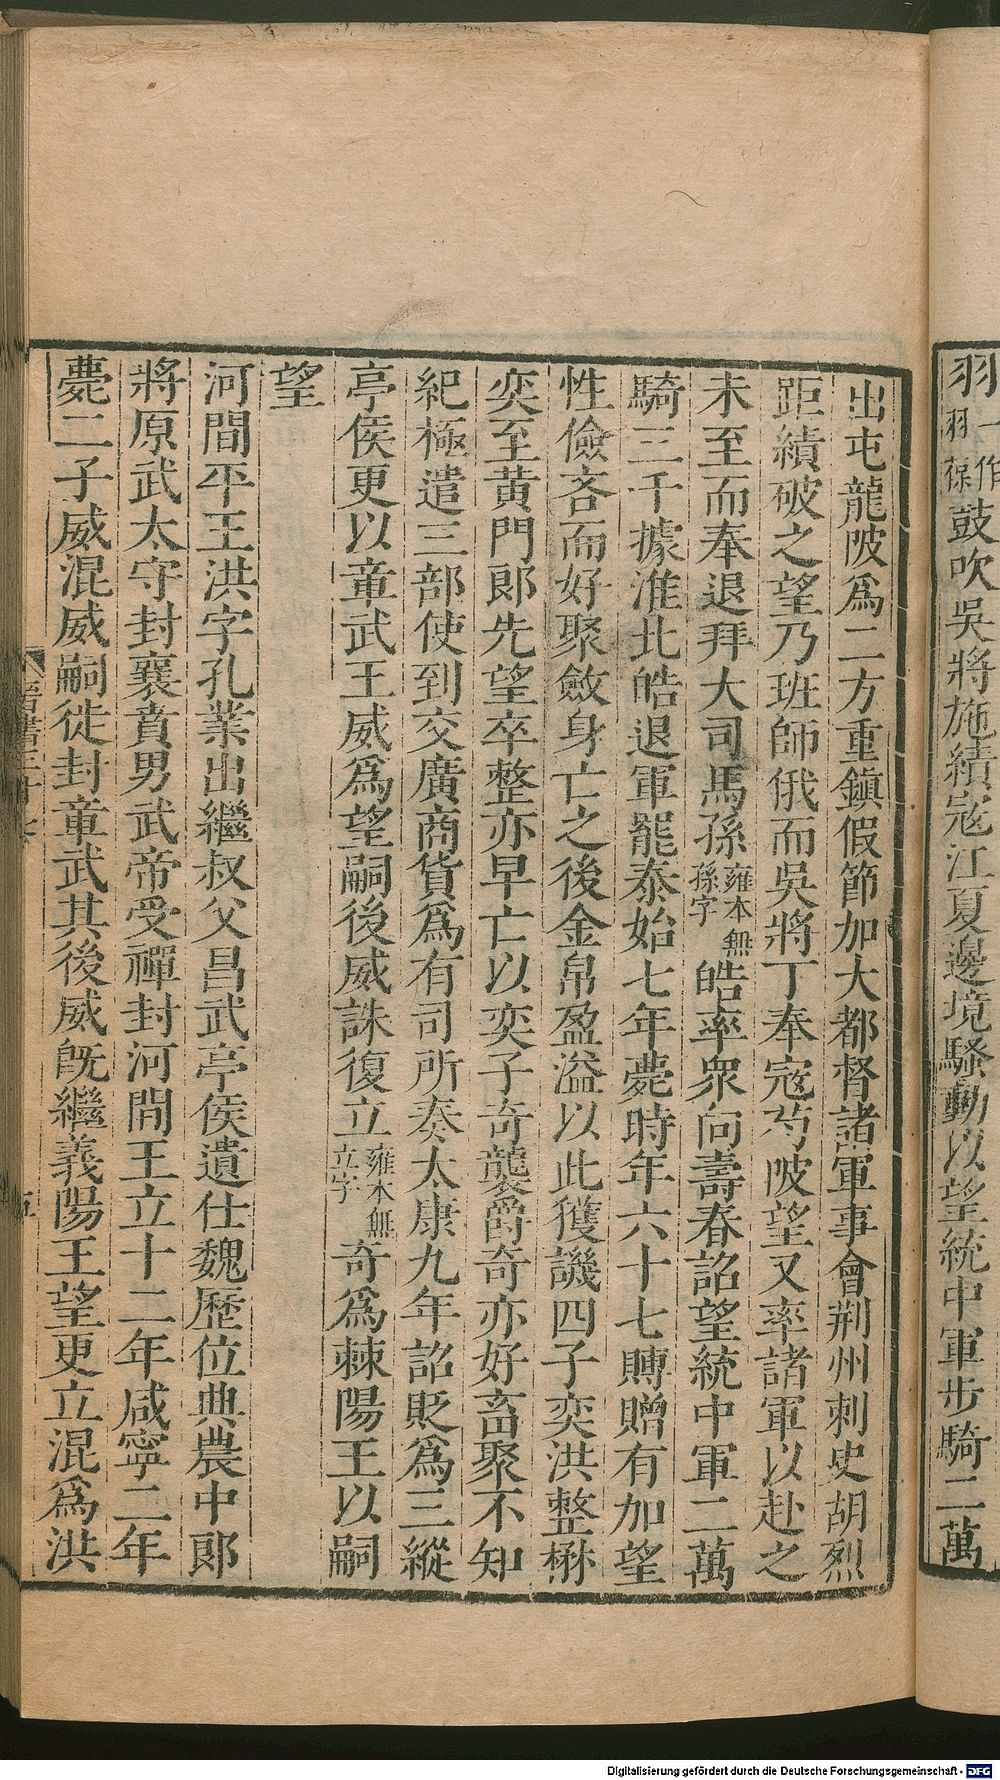 羽一作羽葆鼓吹吳將施績寇江夏邊境騷動以望統中軍步騎二萬
出屯龍陂爲二方重鎭假節加大都督諸軍事會荆州刺史胡烈
距績破之望乃班師俄而吳將丁奉寇芍陂望又率諸軍以赴之
未至而奉退拜大司馬孫雍本無孫字皓率衆向壽春詔望統中軍二萬
騎三千據淮北皓退軍罷泰始七年薨時年六十七賻贈有加望
性儉吝而好聚斂身亡之後金帛盈溢以此獲譏四子奕洪整楙
奕至黃門郞先望卒整亦早亡以奕子奇襲爵奇亦好畜聚不知
紀極遣三部使到交廣商貨爲有司所奏太康九年詔貶爲三縱
亭侯更以章武王威爲望嗣後威誅復立雍本無立字奇爲棘陽王以嗣
望
河間平王洪字孔業出繼叔父昌武亭侯遺仕魏歷位典農中郞
將原武太守封襄賁男武帝受禪封河間王立十二年咸寧二年
薨二子威混威嗣徙封章武其後威旣繼義陽王望更立混爲洪
Digitalisierung gefördert durch die Deutsche Forschungsgemeinschaft - DFG